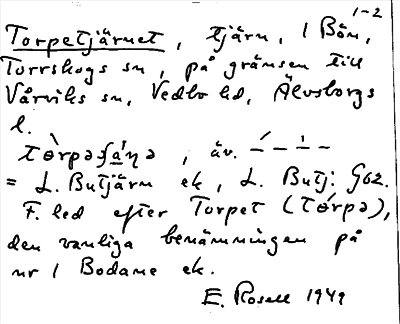 1-2
Torpetjärnet, tjärn, 1 Bön,
Torrskogs sn, på gränsen till
Vårviks sn, Vedbo hd, Älvsborgs
l.
tørpəʃäɳə, äv.
= L. Butjärn ek, L. Butj: G62.
F. led efter Torpet (tørpə),
den vanliga benämningen på
nr 1 Bodane ek.
E. Rosell 1949